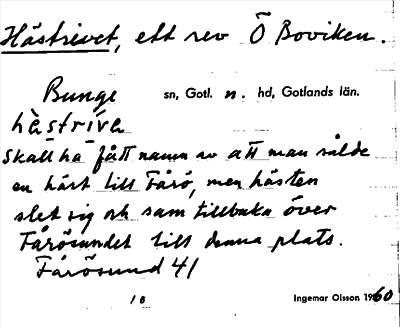 Hästrivet, ett rev Ö Boviken.
Bunge sn, Gotl. n. hd, Gotlands län.
hästriva
Skall ha fått namn av att man sålde
en häst till Fårö, men hästen
slet sig och sam tillbaka över
Fårösundet till denna plats.
Fårösund 41
Ingemar Olsson 1960